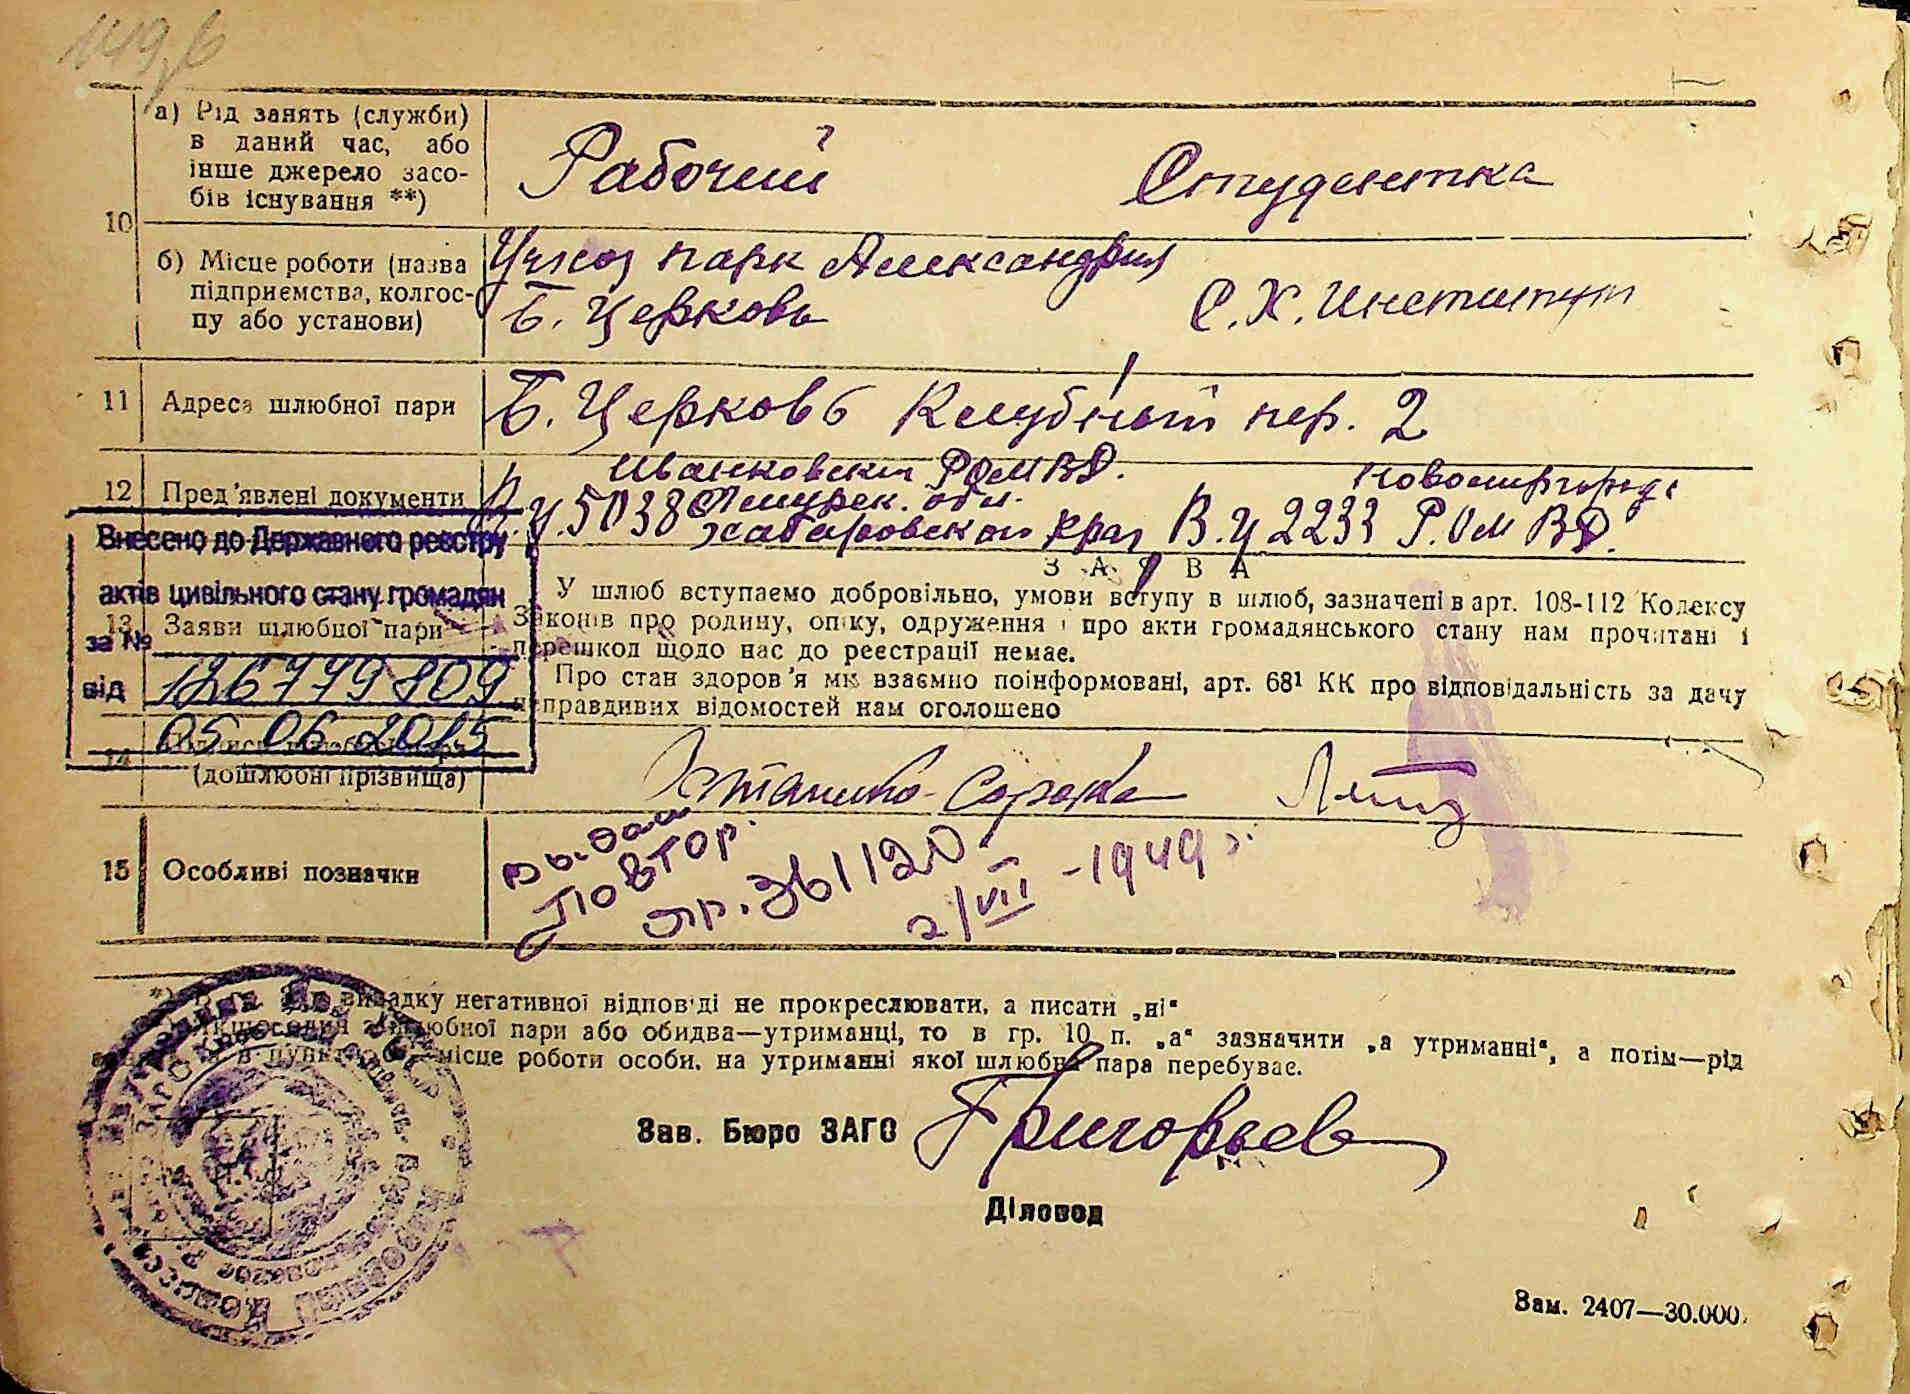 10
а) Рід занять (служби)
в даний час, або
інше джерело засо-
бів існування **)
Рабочий
Студентка
б) Місце роботи (назва
підприємства, колгос-
пу або установи)
парк Александрия
Б. Церковь
С.Х. Институт
11 Адреса шлюбної пари
Б. Церковь Клубный пер. 2
12 Пред'явлені документи
Иванковским РОМВД.
5038 Амурск. обл.
Хабаровского края
Новомиргород
В.Ц 2233 Р.ОМВД.
Внесено до Державного реєстру
актів цивільного стану громадян
за №
126779809
від
05 06 2015
13 Заяви шлюбної пари
ЗАЯВА
У шлюб вступаємо добровільно, умови вступу в шлюб, зазначені в арт. 108-112 Кодексу
Законів про родину, опіку, одруження і про акти громадянського стану нам прочитані і
перешкод щодо нас до реєстрації немає.
Про стан здоров'я ми взаємно поінформовані, арт. 68¹ КК про відповідальність за дачу
неправдивих відомостей нам оголошено
14
(дошлюбні прізвища)
15 Особливі позначки
Выдан
повтор.
361120
2/VII -1949 г.
випадку негативної відповіді не прокреслювати, а писати „ні“
шлюбної пари або обидва—утриманці, то в гр. 10 п. „а“ зазначити „а утриманні“, а потім—рід
місце роботи особи, на утриманні якої шлюбна пара перебуває.
Зав. Бюро ЗАГС
Григорьев
Діловод
Зам. 2407—30.000.